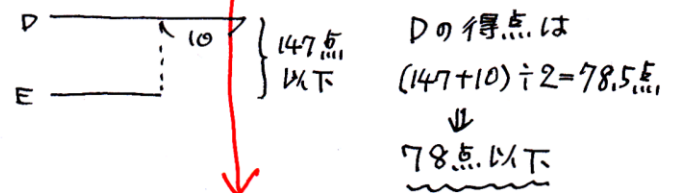 D
10
E
147点
以下
Dの得点は
(147+10)÷2=78.5点
⇓
78点以下